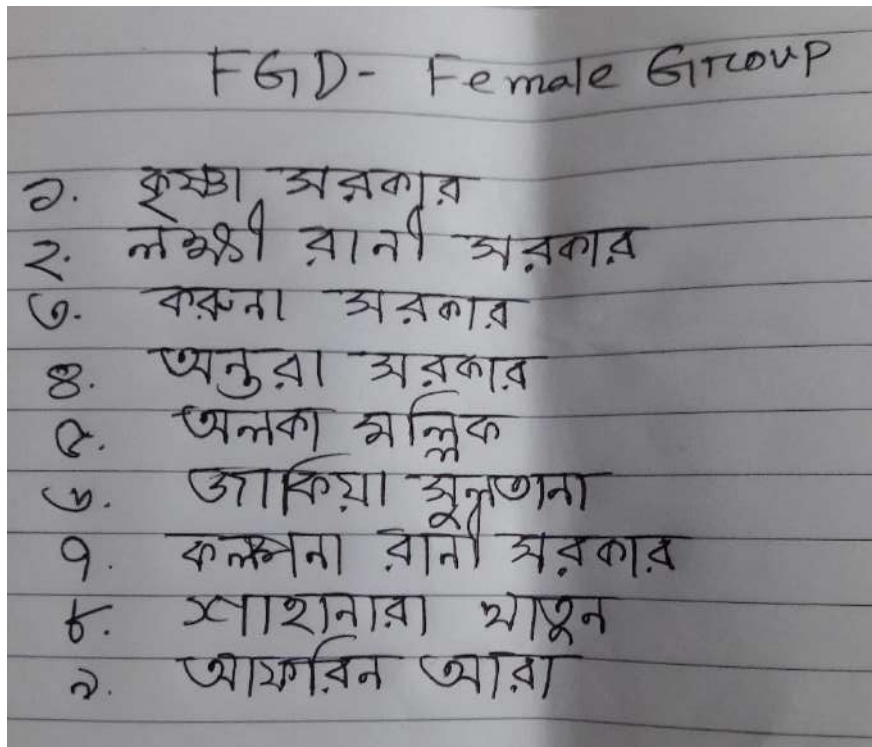 FGD- Female Group
১. কৃষ্ণা সরকার
২. লক্ষ্মী রানী সরকার
৩. করুনা সরকার
৪. অন্তরা সরকার
৫. অলকা মল্লিক
৬. জাকিয়া সুলতানা
৭. কল্পনা রানী সরকার
৮. শাহানারা খাতুন
৯. আফরিন আরা